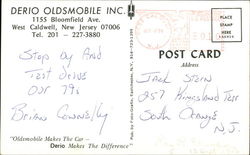 DERIO OLDSMOBILE INC.
1155 Bloomfield Ave.
West Caldwell, New Jersey 07006
Tel. 201 - 227-3880
Stop By And
Test Drive
Our 79s
Brian Connelly
"Oldsmobile Makes The Car —
Derio Makes The Difference"
PLACE
STAMP
HERE
POST CARD
Address
Jack Stein
257
South Orange
N.J.